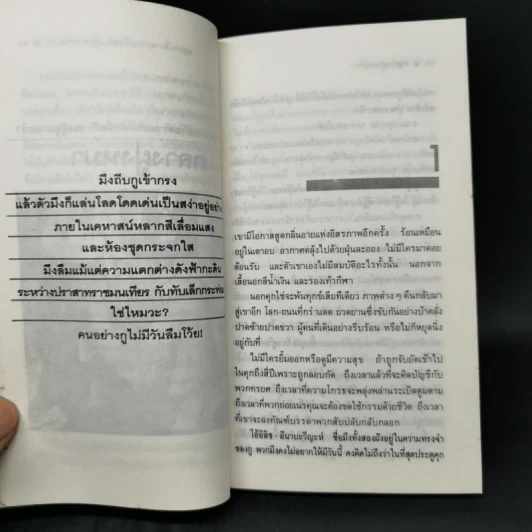 มึงถีบกูเข้ากรง
แล้วตัวมึงก็แล่นโลดโดดเด่นเป็นสง่าอยู่อย่าง
ภายในเคหาสน์หลากสีเลื่อมแสง
และห้องชุดกระจกใส
มึงลืมแม้แต่ความแตกต่างดังฟ้ากะดิน
ระหว่างปราสาทราชมนเทียร กับทับเล็กกระท่อม
ใช่ไหมวะ?
คนอย่างกูไม่มีวันลืมโว้ย!
1
เขามีโอกาสสูดกลิ่นอายแห่งอิสรภาพอีกครั้ง ร้อนเหมือน
อยู่ในเตาอบ อากาศคลุ้งไปด้วยฝุ่นละออง ไม่มีใครมาคอย
ต้อนรับ และตัวเขาเองไม่มีสมบัติอะไรทั้งนั้น นอกจาก
เสื้อนอกสีน้ำเงิน และรองเท้ากีฬา
นอกคุกใช่จะพ้นทุกข์เสียทีเดียว ภาพต่าง ๆ คืนกลับมา
สู่เขาอีก โลก-ถนนที่กร้าแดด ยวดยานซึ่งขับกันอย่างบ้าคลั่ง
ปาดซ้ายปาดขวา ผู้คนที่เดินอย่างรีบร้อน หรือไม่ก็หยุดนิ่ง
อยู่กับที่
ไม่มีใครยิ้มออกหรือดูมีความสุข ถ้าถูกจับยัดเข้าไป
ในคุกถึงสี่ปีเพราะถูกลอบกัด ถึงเวลาแล้วที่จะคิดบัญชีกับ
พวกทรยศ ถึงเวลาที่ความโกรธจะพลุ่งพล่านระเบิดตูมตาม
ถึงเวลาที่พวกถ่อยเนรคุณจะต้องชดใช้กรรมด้วยชีวิต ถึงเวลา
ที่เขาจะลงทัณฑ์บรรดาพวกสับปลับกลับกลอก
ชื่อมึงทั้งสองฝังอยู่ในความทรงจำ
ของกู พวกมึงคงไม่อยากให้มีวันนี้ คงคิดไม่ถึงว่าในที่สุดประตูคุก